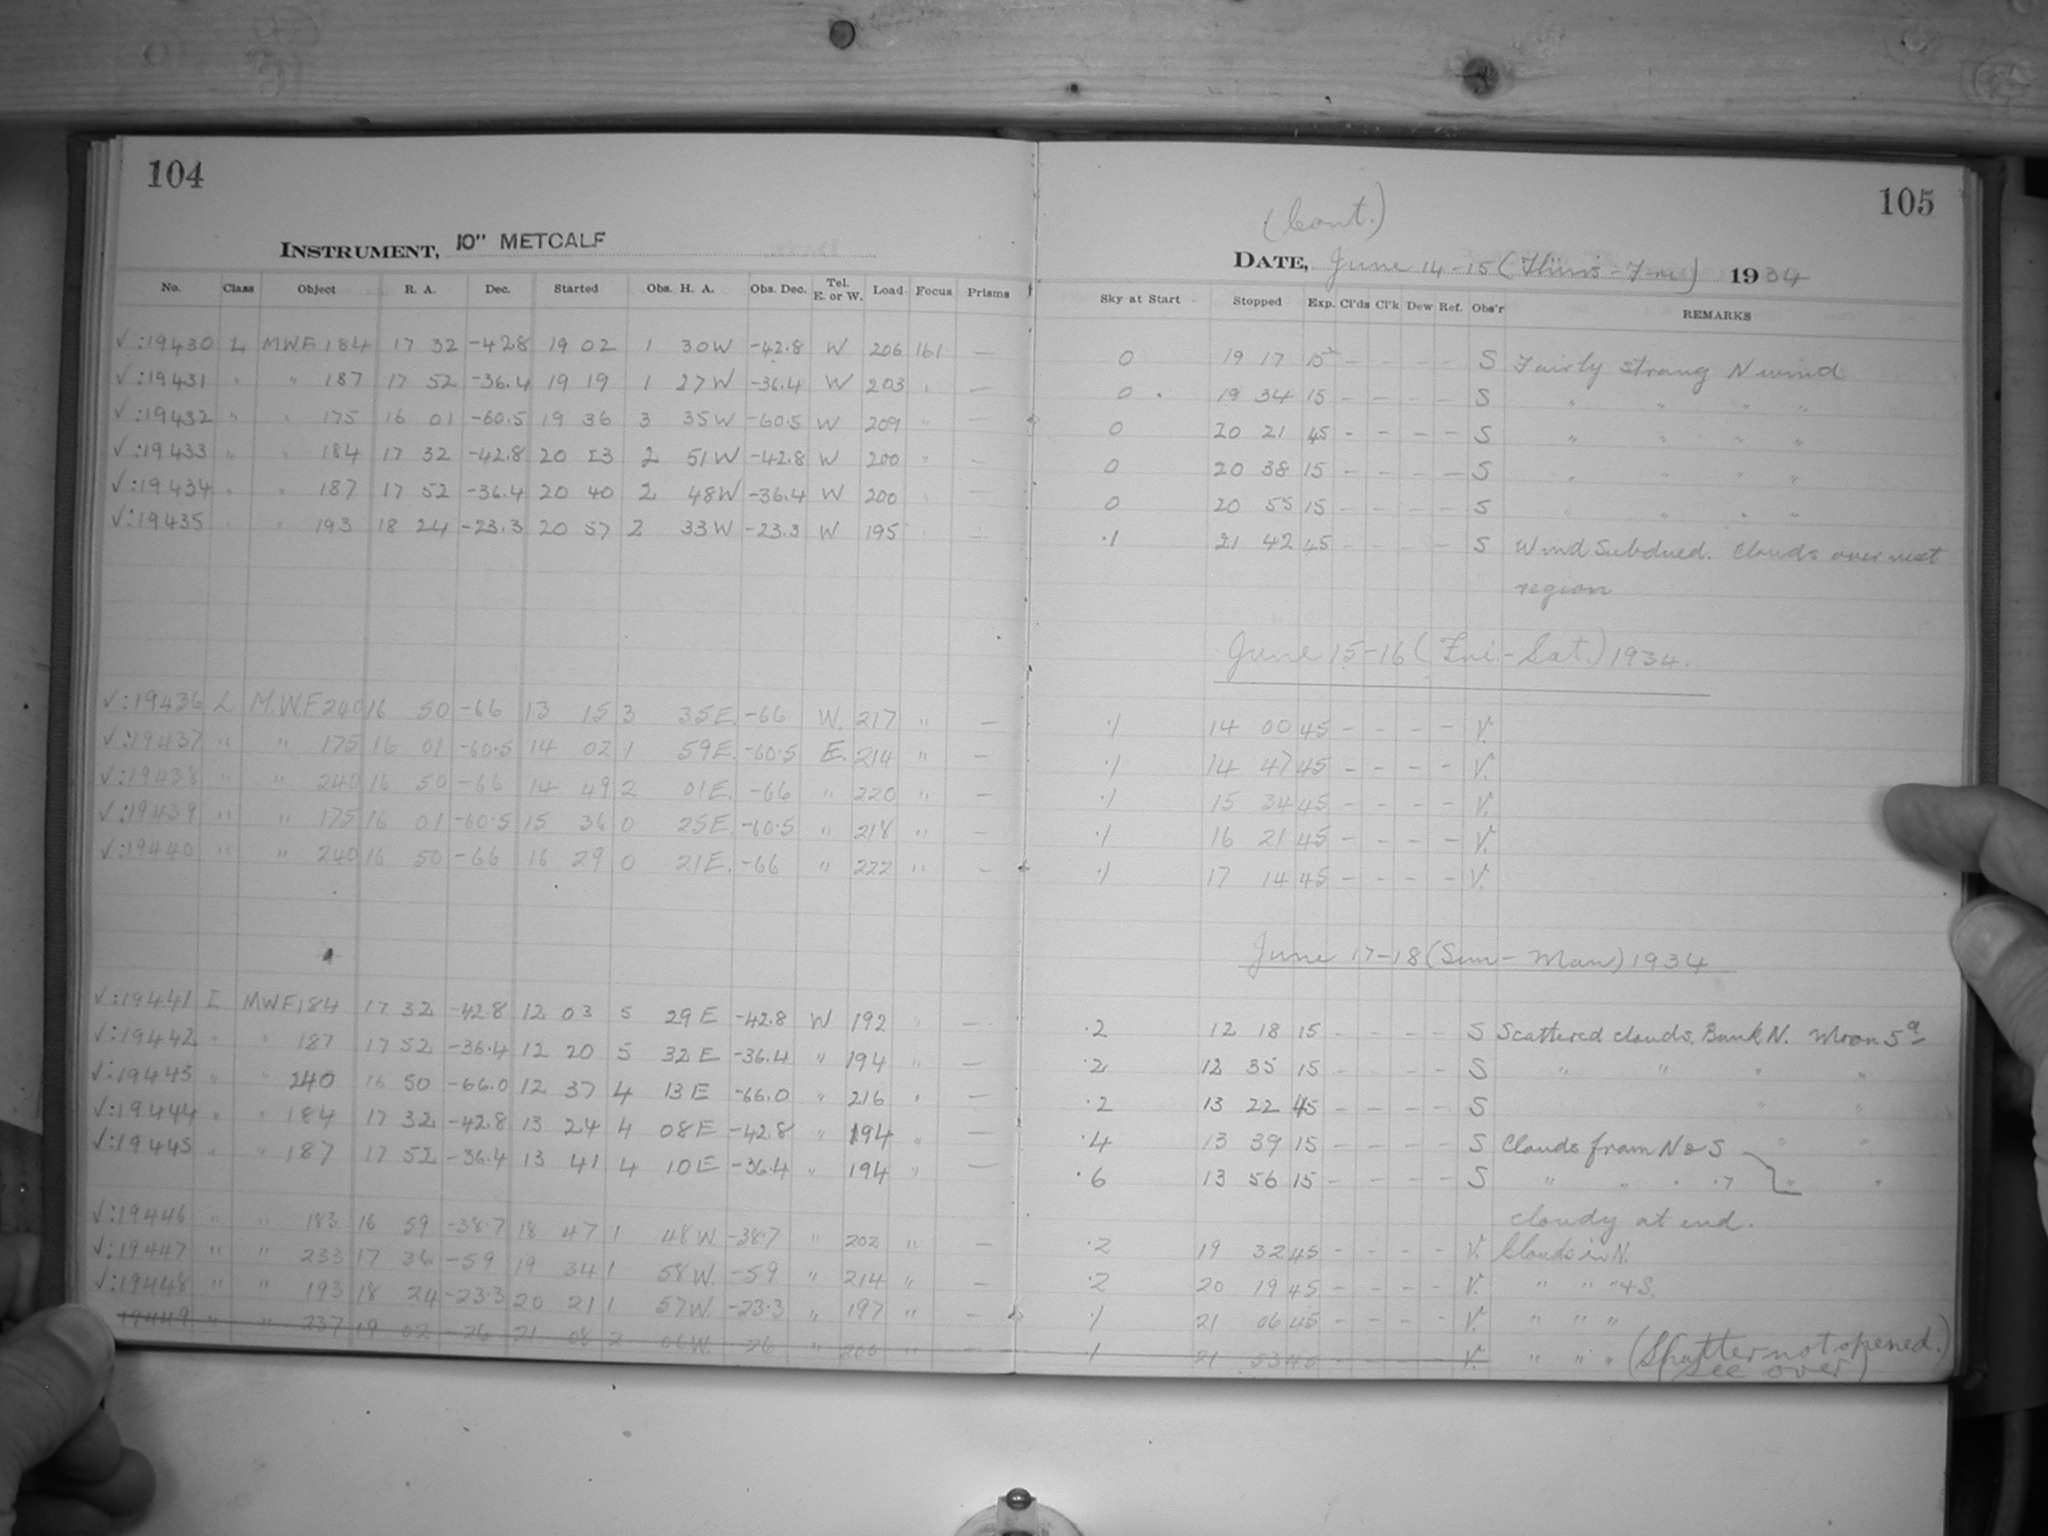 104
INSTRUMENT, 10" METCALF
No. Class Object R. A. Dec. Started Obs. H. A. Obs. Dec. Tel. E. or W. Load Focus Prisms
√:19430 I MWF 184 17 32 -42.8 19 02 1 30W -42.8 W 206 161 —
√:19431 " " 187 17 52 -36.4 19 19 1 27W -36.4 W 203 " —
√:19432 " " 175 16 01 -60.5 19 36 3 35W -60.5 W 209 " —
√:19433 " " 184 17 32 -42.8 20 23 2 51W -42.8 W 200 " —
√:19434 " " 187 17 52 -36.4 20 40 2 48W -36.4 W 200 " —
√:19435 " " 193 18 24 -23.3 20 57 2 33W -23.3 W 195 " —
√:19436 L M.W.F 240 16 50 -66 13 15 3 35E. -66 W. 217 " —
√:19437 " " 175 16 01 -60.5 14 02 1 59E. -60.5 E. 214 " —
√:19438 " " 240 16 50 -66 14 49 2 01E. -66 " 220 " —
√:19439 " " 175 16 01 -60.5 15 36 0 25E. -60.5 " 218 " —
√:19440 " " 240 16 50 -66 16 29 0 21E. -66 " 222 " —
√:19441 I MWF 184 17 32 -42.8 12 03 5 29E -42.8 W 192 " —
√:19442 " " 187 17 52 -36.4 12 20 5 32E -36.4 " 194 " —
√:19443 " " 240 16 50 -66.0 12 37 4 13E -66.0 " 216 " —
√:19444 " " 184 17 32 -42.8 13 24 4 08E -42.8 " 194 " —
√:19445 " " 187 17 52 -36.4 13 41 4 10E -36.4 " 194 " —
√:19446 " " 183 16 59 -38.7 18 47 1 48W. -38.7 " 202 " —
√:19447 " " 233 17 36 -59 19 34 1 58W. -59 " 214 " —
√:19448 " " 193 18 24 -23.3 20 21 1 57W. -23.3 " 197 " —
19449 " " 237 19 02 -26 21 08 2 06W. -26 " 200 " —
105
(Cont.)
DATE, June 14-15 (Thurs-Fri) 1934
Sky at Start Stopped Exp. Cl'ds Cl'k Dew Ref. Obs'r REMARKS
0 19 17 15 - - - - S Fairly strong N wind
0 19 34 15 - - - - S " " " "
0 20 21 45 - - - - S " " " "
0 20 38 15 - - - - S " " "
0 20 55 15 - - - - S " " " "
.1 21 42 45 - - - - S Wind Subdued. Clouds over next
region
June 15-16 (Fri.-Sat.) 1934.
.1 14 00 45 - - - - V.
.1 14 47 45 - - - - V.
.1 15 34 45 - - - - V.
.1 16 21 45 - - - - V.
.1 17 14 45 - - - - V.
June 17-18 (Sun-Mon) 1934
.2 12 18 15 - - - - S Scattered clouds. Bank N. Moon 5
.2 12 35 15 - - - - S " " " "
.2 13 22 45 - - - - S " "
.4 13 39 15 - - - - S Clouds from N & S " "
.6 13 56 15 - - - - S " " " .7 " "
cloudy at end.
.2 19 32 45 - - - - V. Clouds in N.
.2 20 19 45 - - - - V. " " " & S.
.1 21 06 45 - - - - V. " " "
.1 21 53 - - - - V. " " " (Shutter not opened.
See over)